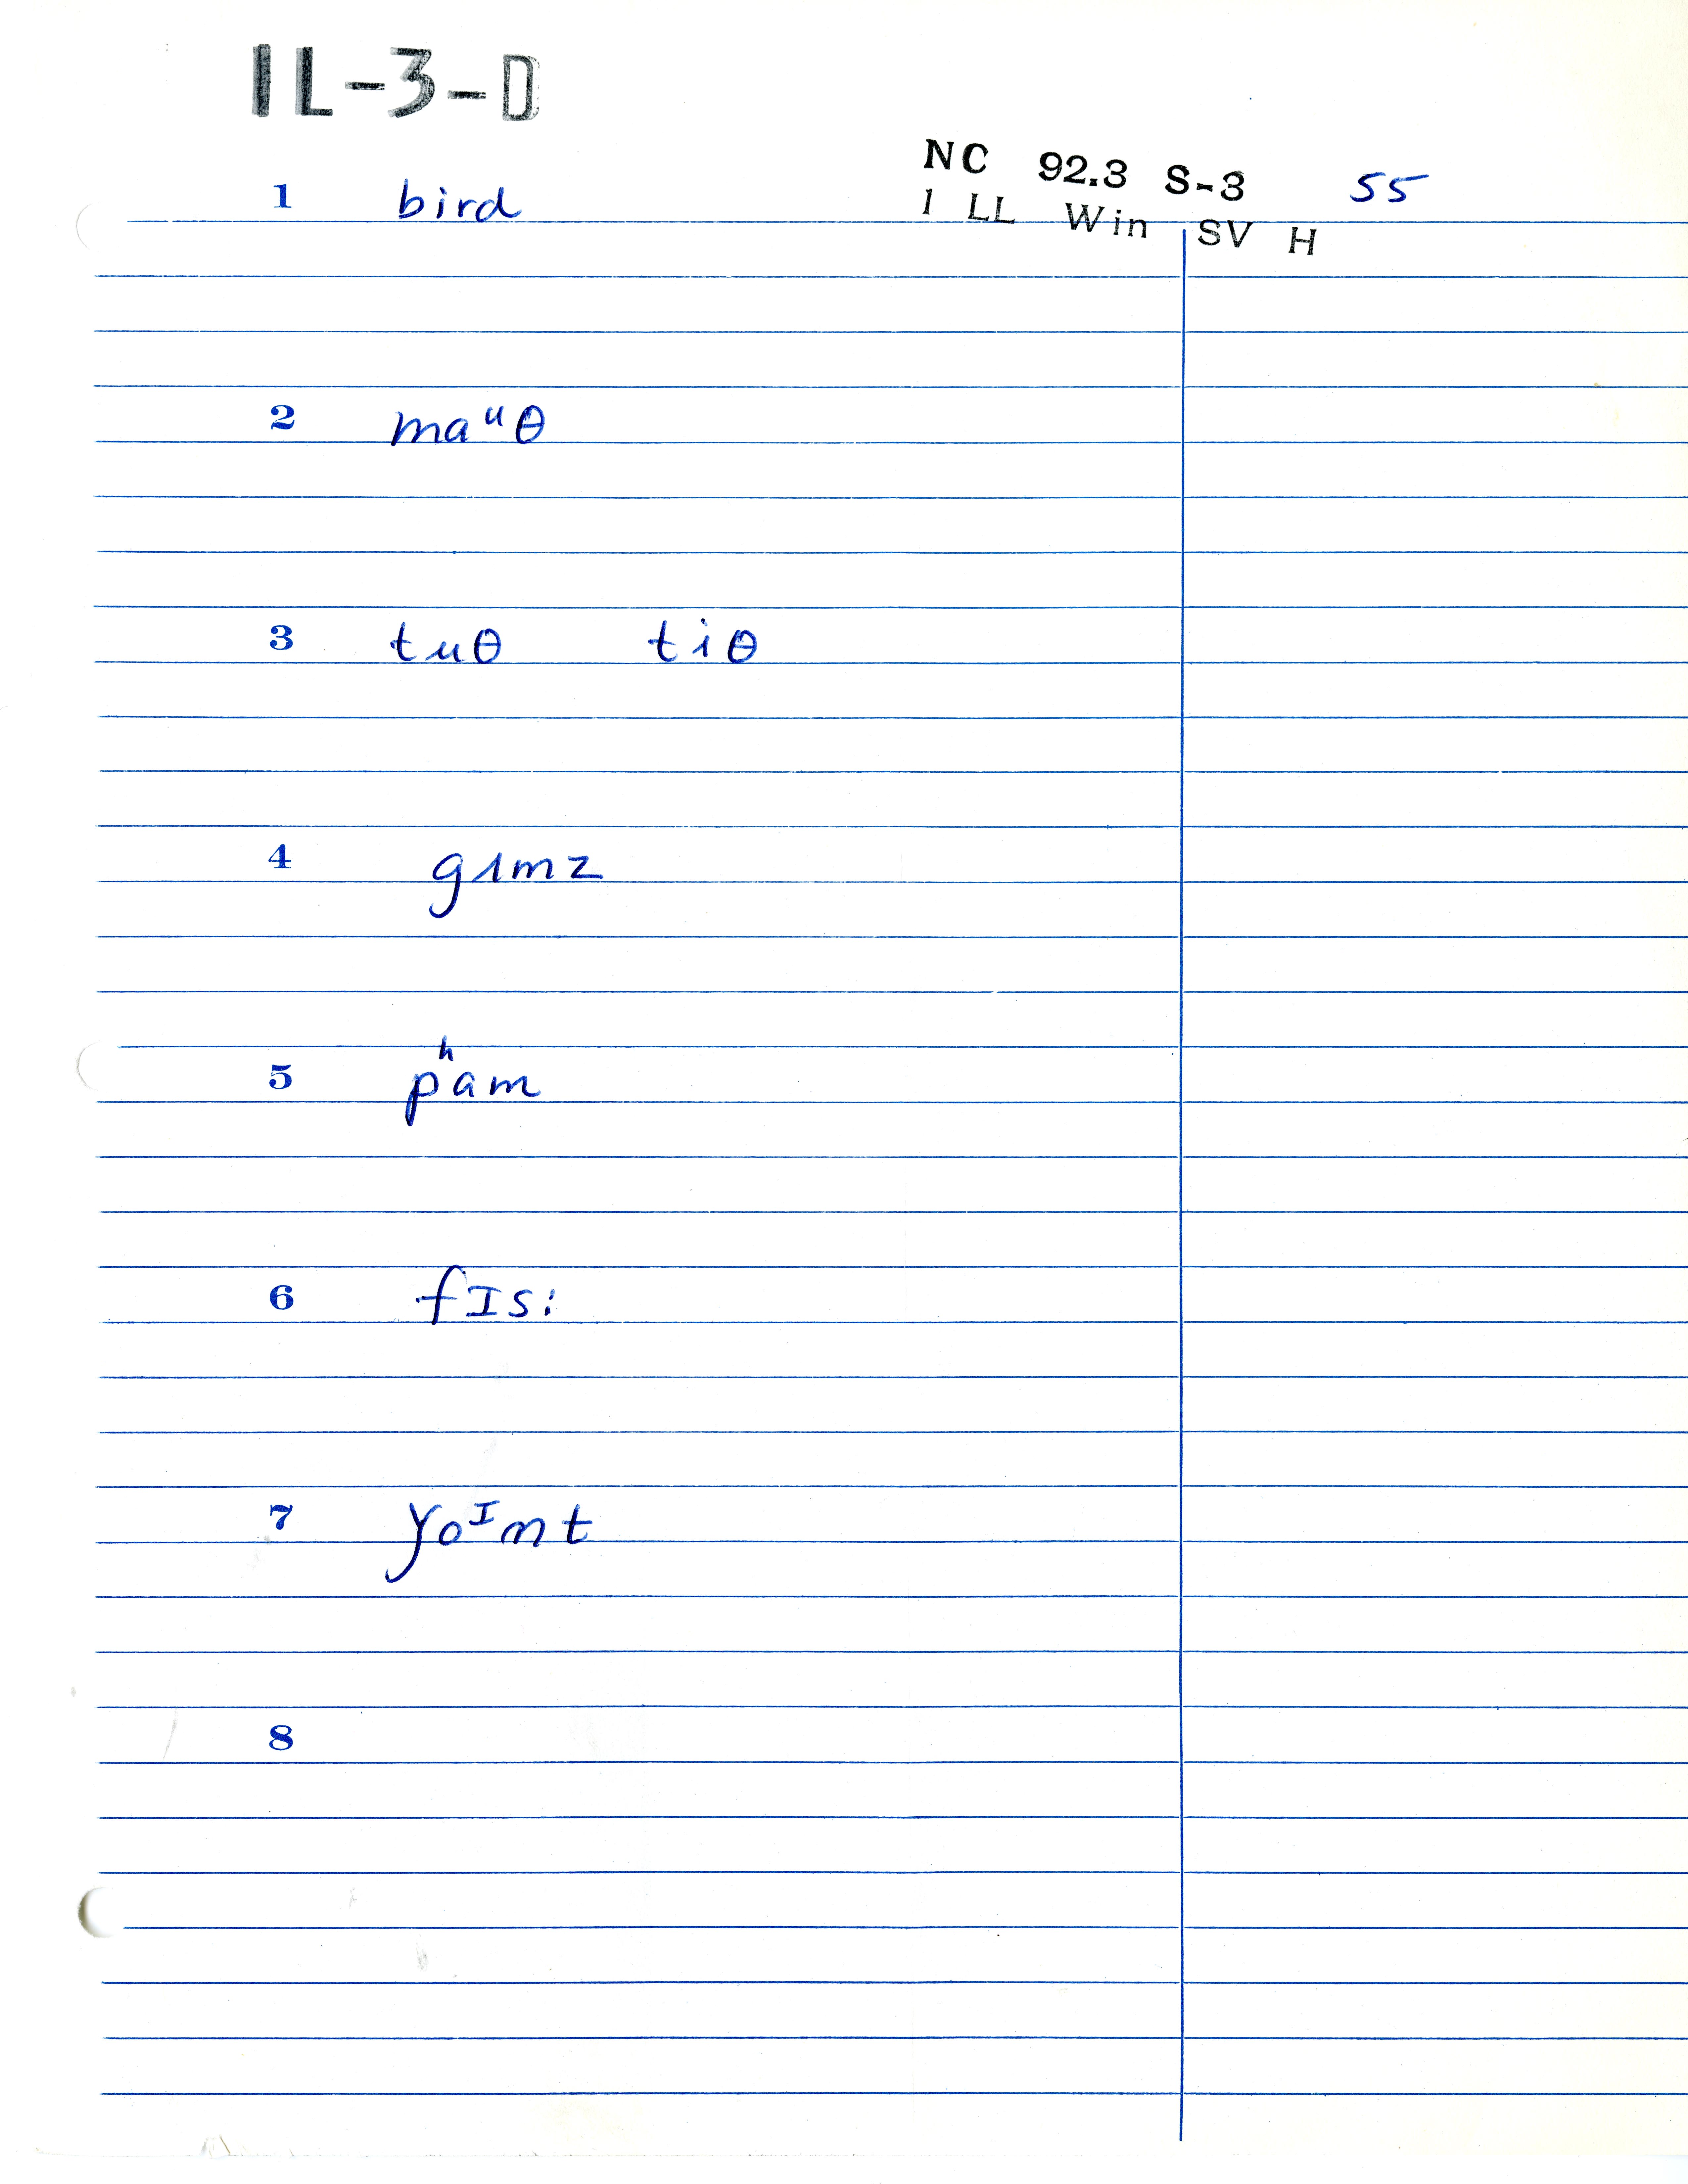 IL-3-D
NC 92.3 S-3 55
1 LL Win SV H
1 bird
2 maᵘθ
3 tuθ tiθ
4 gımz
5 pʰam
6 fIs:
7 yoᴵnt
8